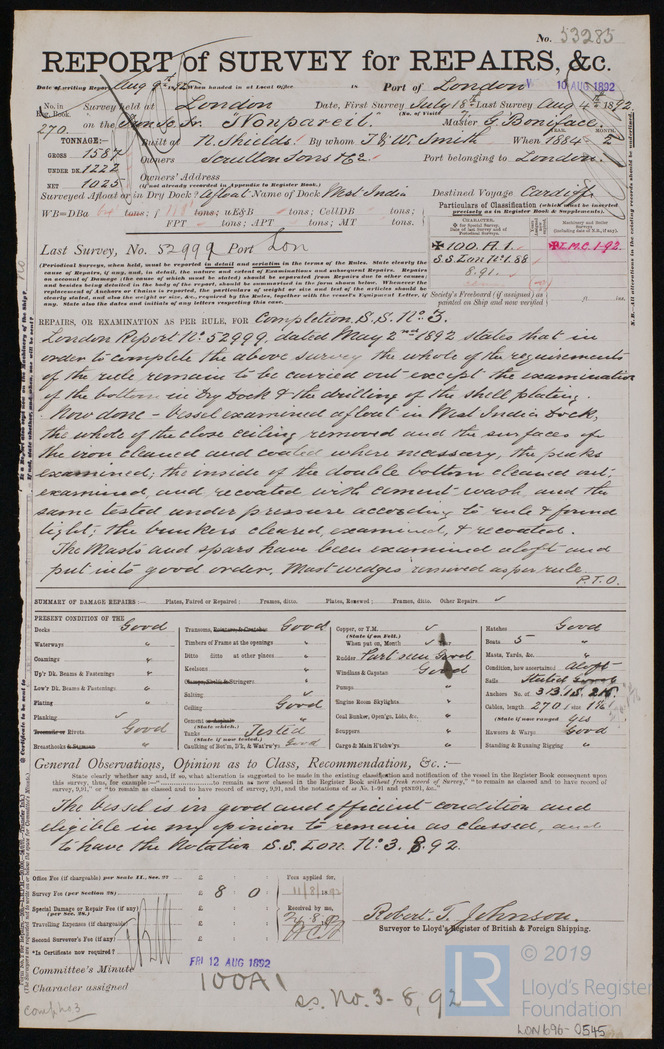 No. 53285
REPORT of SURVEY for REPAIRS, &c.
Date of writing Report Aug 9th 1892 When handed in at Local Office 18 Port of London 10 AUG 1892
No. in Reg. Book 270. Survey held at London Date, First Survey July 18th Last Survey Aug 4th 1892
(No. of Visits 7)
on the Iron Sc. Sr. "Nonpareil." Master G. Boniface.
TONNAGE:—
GROSS 1587
UNDER DK. 1222
NET 1025
Built at N. Shields. By whom T. & W. Smith When 1884 MONTH 2
Owners Scrutton Sons & Co. Port belonging to London.
Owners' Address
(if not already recorded in Appendix to Register Book.)
Surveyed Afloat or in Dry Dock? Afloat Name of Dock West India Destined Voyage Cardiff
WB=DBa tons; f tons; uE&B tons; CellDB tons;
FPT tons; APT tons; MT tons.
Particulars of Classification (which must be inserted precisely as in Register Book & Supplements).
100.A.1.
S.S. Lon No.1.88
8.91.
L.M.C. 1.92
Last Survey, No. 52999 Port Lon
(Periodical Surveys, when held, must be reported in detail and seriatim in the terms of the Rules. State clearly the
cause of Repairs, if any, and, in detail, the nature and extent of Examinations and subsequent Repairs. Repairs
on account of Damage (the cause of which must be stated) should be separated from Repairs due to other causes;
and besides being detailed in the body of the report, should be summarised in the form shewn below. Whenever the
replacement of Anchors or Chains is reported, the particulars of weight or size and test of the articles should be
clearly stated, and also the weight or size, &c., required by the Rules, together with the vessel's Equipment Letter, if
any. State also the dates and initials of any letters respecting this case.
Society's Freeboard (if assigned) as painted on Ship and now verified } ft. ins.
REPAIRS, OR EXAMINATION AS PER RULE, FOR Completion, S.S. No. 3.
London Report No. 52999, dated May 2nd 1892 states that in
order to complete the above survey the whole of the requirements
of the rule remain to be carried out except the examination
of the bottom in Dry Dock & the drilling of the shell plating.
Now done – Vessel examined afloat in West India Dock,
the whole of the close ceiling removed and the surfaces of
the iron cleaned and coated where necessary, the peaks
examined; the inside of the double bottom cleaned out
examined, and recoated with cement-wash and the
same tested under pressure according to rule & found
tight; the bunkers cleared, examined, & recoated.
The Masts and spars have been examined aloft and
put into good order. Mast wedges removed as per rule.
P.T.O.
SUMMARY OF DAMAGE REPAIRS :— Plates, Faired or Repaired ; Frames, ditto. Plates, Renewed ; Frames, ditto. Other Repairs
PRESENT CONDITION OF THE
Decks Good
Waterways "
Coamings "
Up'r Dk. Beams & Fastenings "
Low'r Dk. Beams & Fastenings "
Plating "
Planking
Treenails or Rivets Good
Breasthooks & Stemson "
Transoms, Pointers & Crutches Good
Timbers of Frame at the openings
Ditto ditto at other places "
Keelsons "
Clamps, Shelfs & Stringers "
Salting
Ceiling Good
Cement or Asphalt "
(State which.)
Tanks Tested
(State if now tested.)
Caulking of Bot'm, D'k, & Wat'rw'ys Good
Copper, or Y.M.
(State if on Felt.)
When put on, Month Year
Rudder Part seen Good
Windlass & Capstan Good
Pumps "
Engine Room Skylights "
Coal Bunker, Open'gs, Lids, &c. "
Scuppers "
Cargo & Main H'tchw'ys "
Hatches Good
Boats 5 "
Masts, Yards, &c. "
Condition, how ascertained aloft
Sails Stated Good
Anchors No. of 3B, 1S, 2K.
Cables, length 270 size 1 13/16
(State if now ranged yes
Hawsers & Warps Good
Standing & Running Rigging "
General Observations, Opinion as to Class, Recommendation, &c. :—
State clearly whether any and, if so, what alteration is suggested to be made in the existing classification and notification of the vessel in the Register Book consequent upon
this survey, thus, for example :—"................to remain as now classed in the Register Book without fresh record of Survey," "to remain as classed and to have record of
survey, 9,91," or "to remain as classed and to have record of survey, 9,91, and the notations of ss No. 1-91 and ptnd91, &c."
The vessel is in good and efficient condition and
eligible in my opinion to remain as classed, and
to have the Notation S.S. Lon. No. 3. 8.92.
Office Fee (if chargeable) per Scale II., Sec. 27 £
Survey Fee (per Section 28) £ 8 : 0 :
Special Damage or Repair Fee (if any) (per Sec. 28.) £
Travelling Expenses (if chargeable) £
Second Surveyor's Fee (if any) £
Fees applied for, 11/8/1892
Received by me, 24.8.92
Robert T. Johnson.
Surveyor to Lloyd's Register of British & Foreign Shipping.
*Is Certificate now required ?
Committee's Minute FRI 12 AUG 1892
Character assigned 100A1
ss. No. 3 - 8,92
LR © 2019
Lloyd's Register
Foundation
LON696-0545